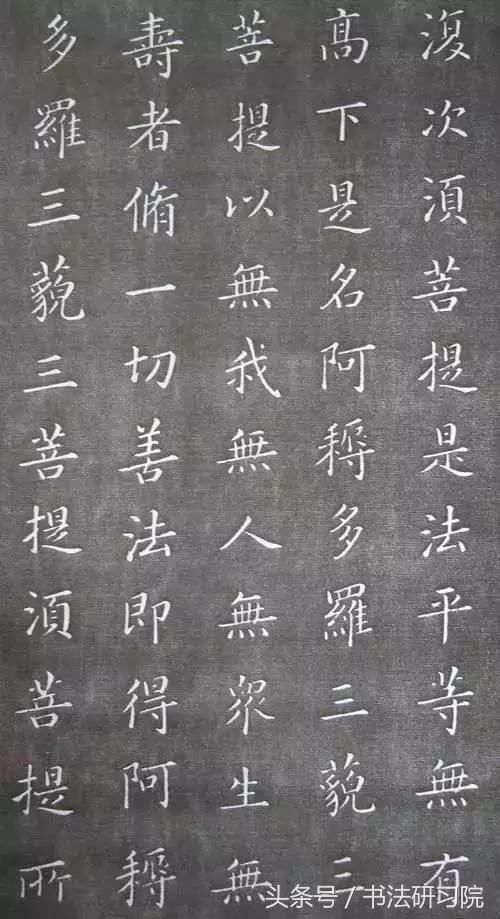 復次湏菩提是法平等無有
髙下是名阿耨多羅三藐三
菩提以無我無人無衆生無
壽者脩一切善法即得阿耨
多羅三藐三菩提湏菩提所
头条号/书法研习院